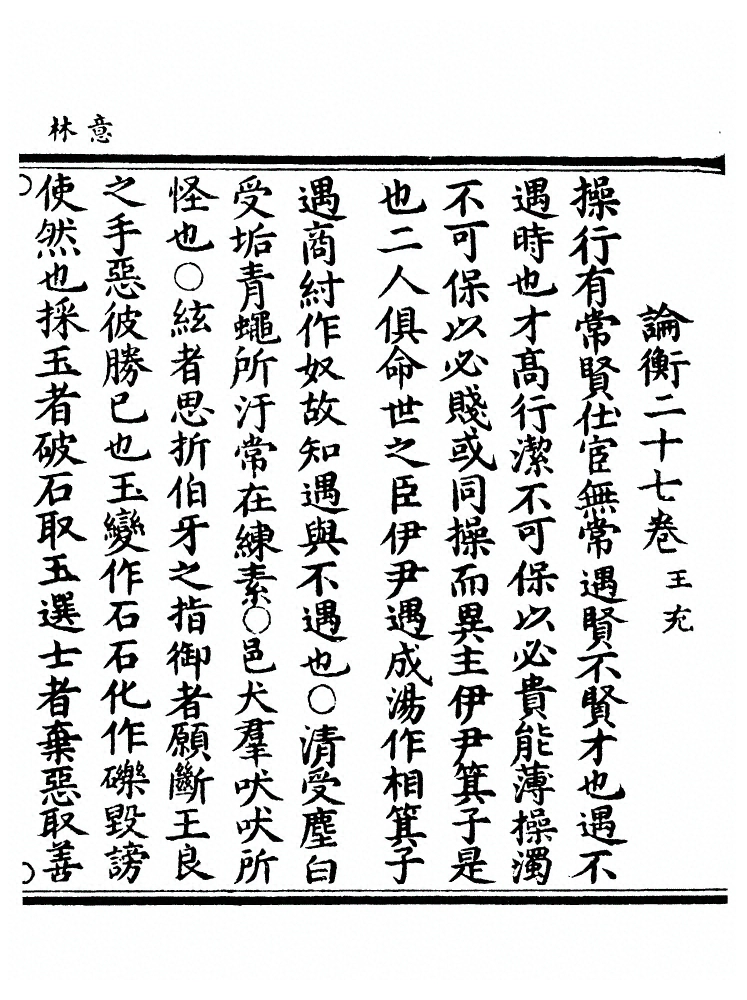 意林
論衡二十七卷王充
操行有常賢仕宦無常遇賢不賢才也遇不
遇時也才髙行潔不可保以必貴能薄操濁
不可保以必賤或同操而異主伊尹箕子是
也二人俱命世之臣伊尹遇成湯作相箕子
遇商紂作奴故知遇與不遇也○清受塵白
受垢青蠅所汙常在練素○邑犬羣吠吠所
怪也○絃者思折伯牙之指御者願斷王良
之手惡彼勝已也玉變作石石化作礫毀謗
使然也採玉者破石取玉選士者棄惡取善